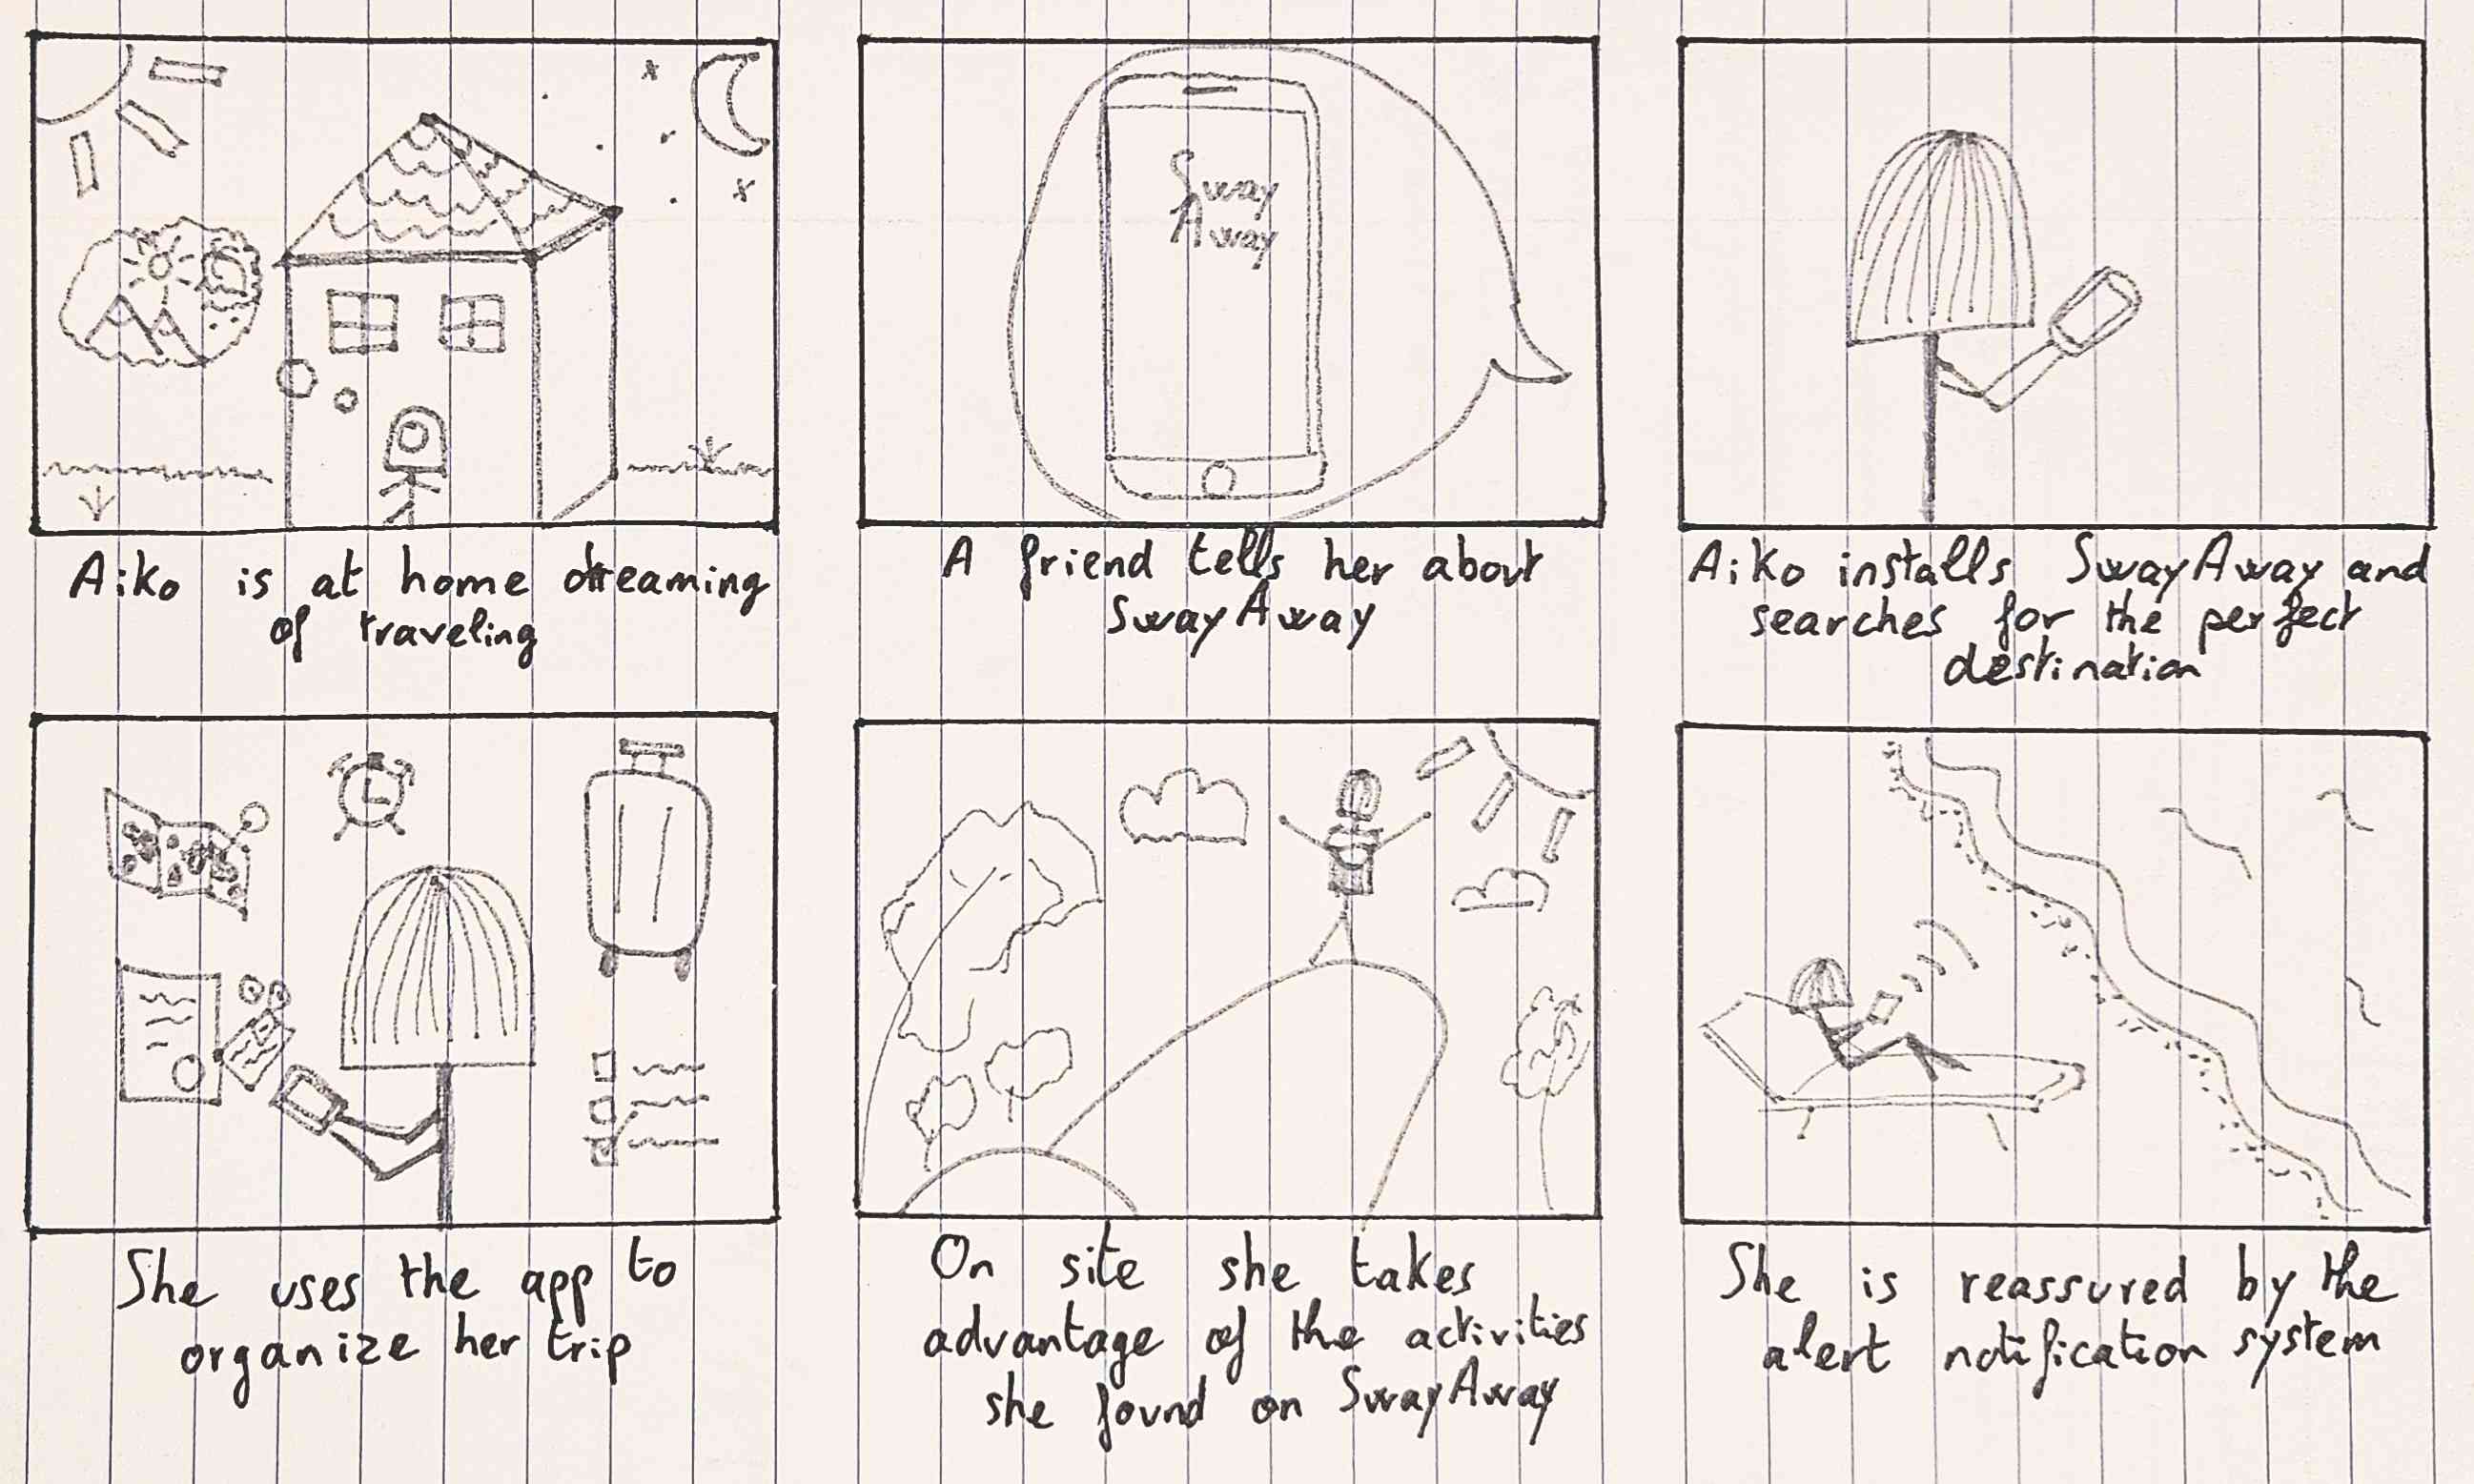 Sway
Away
Aiko is at home dreaming
of traveling
A friend tells her about
SwayAway
Aiko installs SwayAway and
searches for the perfect
destination
She uses the app to
organize her trip
On site she takes
advantage of the activities
she found on SwayAway
She is reassured by the
alert notification system